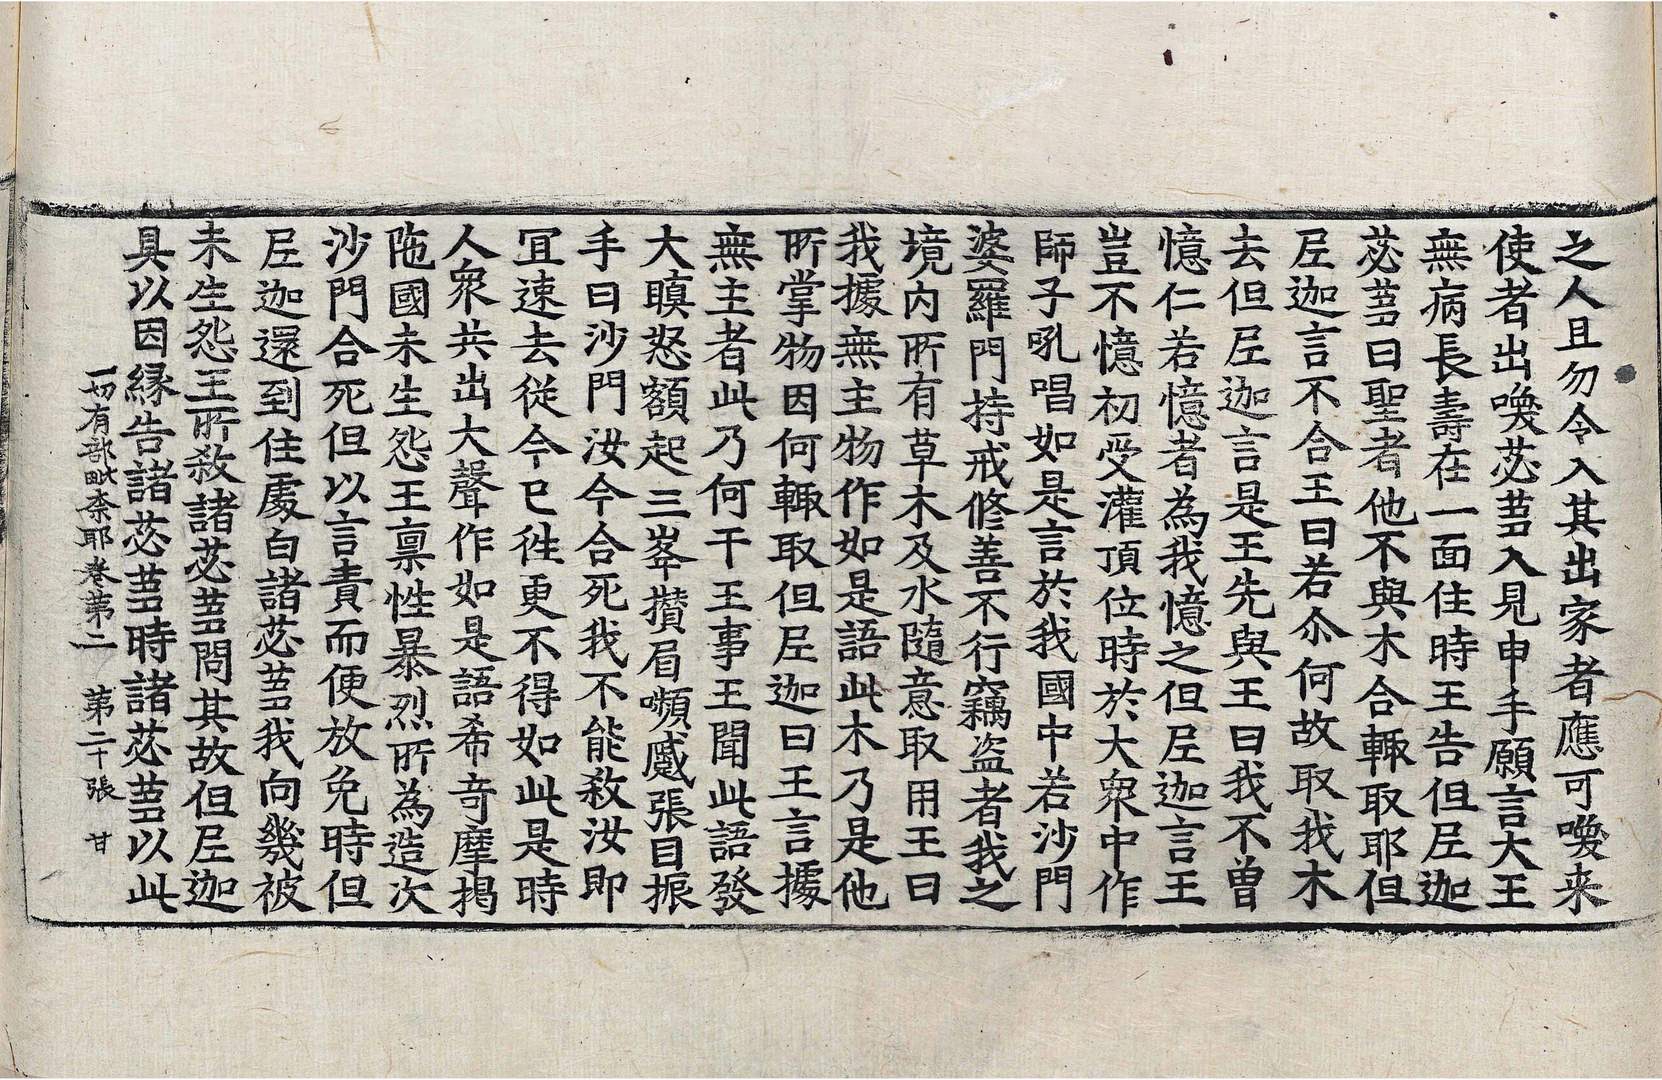 之人且勿令入其出家者應可喚来
使者出喚苾芻入見申手願言大王
無病長壽在一面住時王告但𡰱迦
苾芻曰聖者他不與木合輙取耶但
𡰱迦言不合王曰若尒何故取我木
去但𡰱迦言是王先與王曰我不曽
憶仁若憶者為我憶之但𡰱迦言王
豈不憶初受灌頂位時於大衆中作
師子吼唱如是言於我國中若沙門
婆羅門持戒修善不行竊盗者我之
境内所有草木及水隨意取用王曰
我據無主物作如是語此木乃是他
所掌物因何輙取但𡰱迦曰王言據
無主者此乃何干王事王聞此語發
大瞋怒額起三峯攅眉嚬蹙張目振
手曰沙門汝今合死我不能殺汝即
冝速去從今已徃更不得如此是時
人衆共出大聲作如是語希竒摩揭
陁國未生怨王禀性暴烈所為造次
沙門合死但以言責而便放免時但
𡰱迦還到住處白諸苾芻我向幾被
未生怨王所殺諸苾芻問其故但𡰱迦
具以因縁告諸苾芻時諸苾芻以此
一切有部毗奈耶卷第二　第二十張　甘